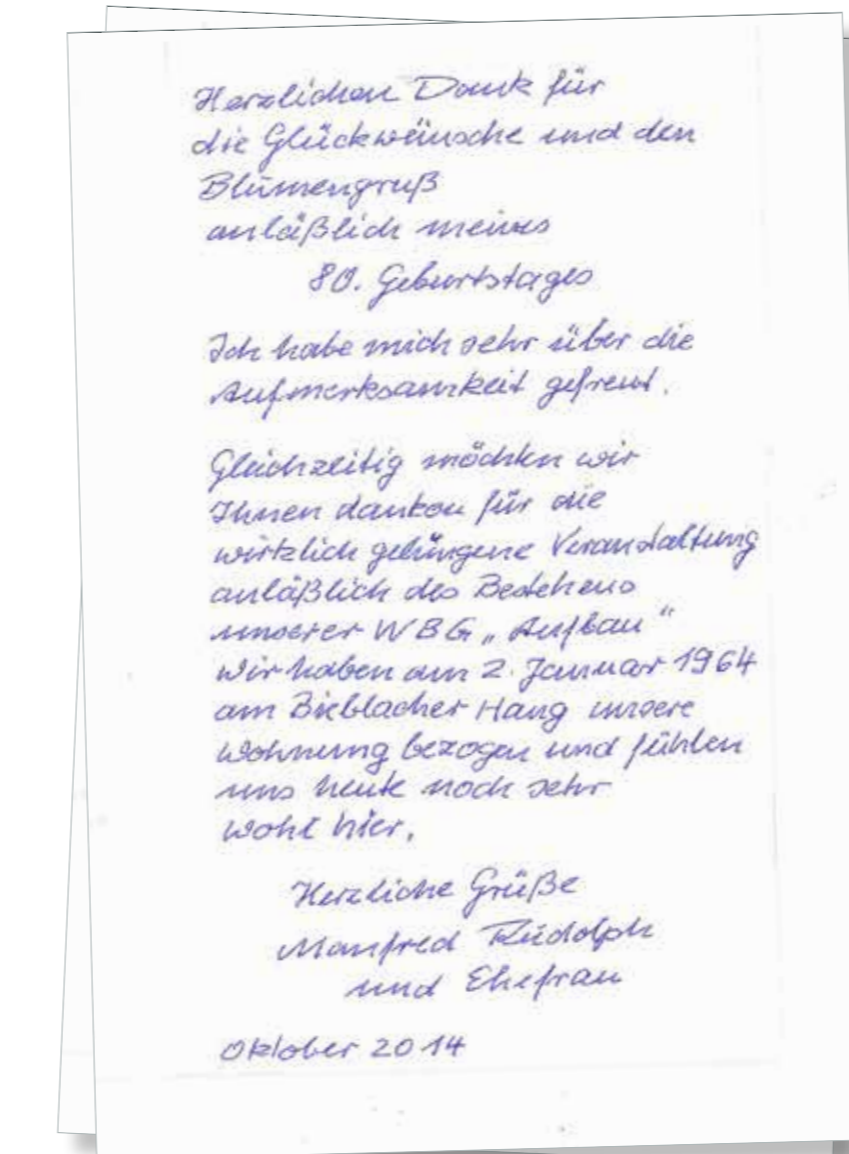 Herzlichen Dank für
die Glückwünsche und den
Blumengruß
anläßlich meines
80. Geburtstages
Ich habe mich sehr über die
Aufmerksamkeit gefreut.
Gleichzeitig möchten wir
Ihnen danken für die
wirklich gelungene Veranstaltung
anläßlich des Bestehens
unserer WBG „Aufbau“
Wir haben am 2. Januar 1964
am Bieblacher Hang unsere
Wohnung bezogen und fühlen
uns heute noch sehr
wohl hier.
Herzliche Grüße
Manfred Rudolph
und Ehefrau
Oktober 2014